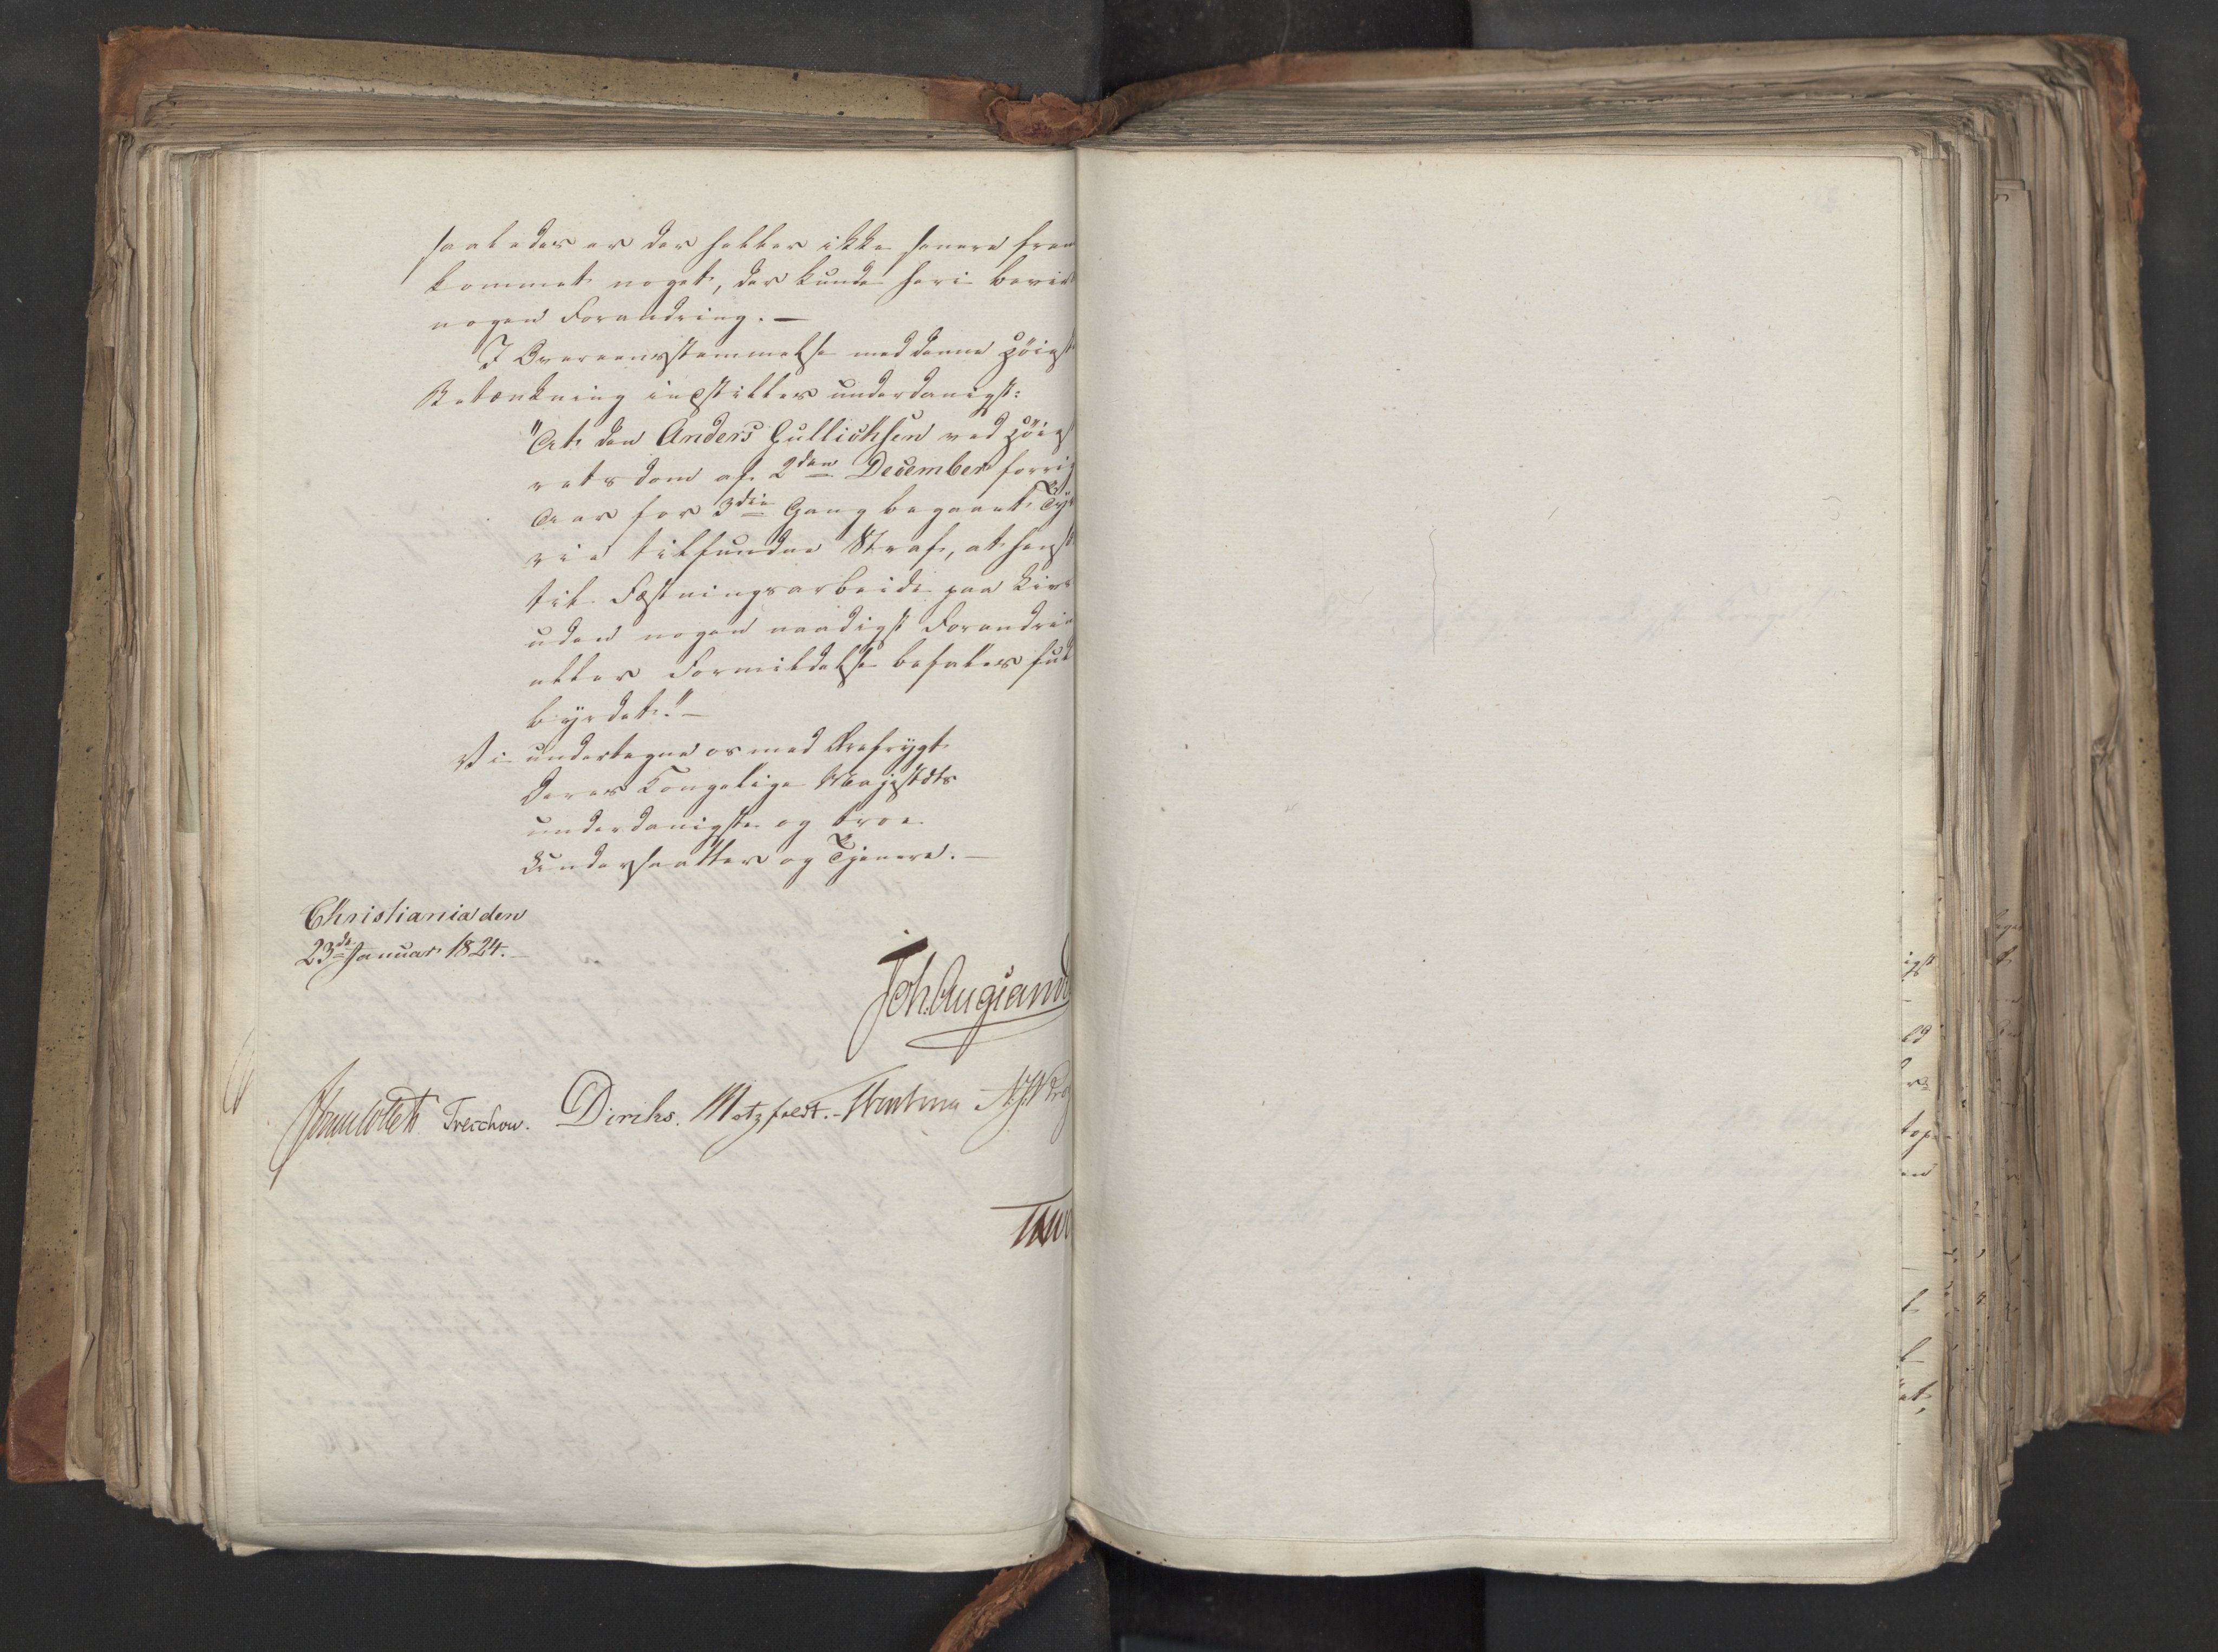 saaledes er der heller ikke senere frem
kommet noget, der kunde heri bevir
nogen Forandring. —
I Overeensstemmelse med denne Høiest
Betænkning indstilles underdanigst:
"At den Anders Gullichsen ved Høies
rets dom af 2den December forrig
Aar for 3die Gang begaaet Ty
rie tilfundne Straf, at hens
til Fæstningsarbeide paa Livs
uden nogen naadigst Forandrin
eller Formildelse befales ful
byrdet." —
Vi undertegne os med Ærefrygt
Deres Kongelige Majestæts
underdanigste og troe
Undersaatter og Tjenere. —
Christiania den
23de Januar 1824. —
Joh. Aug Sand
Jonas Collett Treschow. Diriks. Motzfeldt.